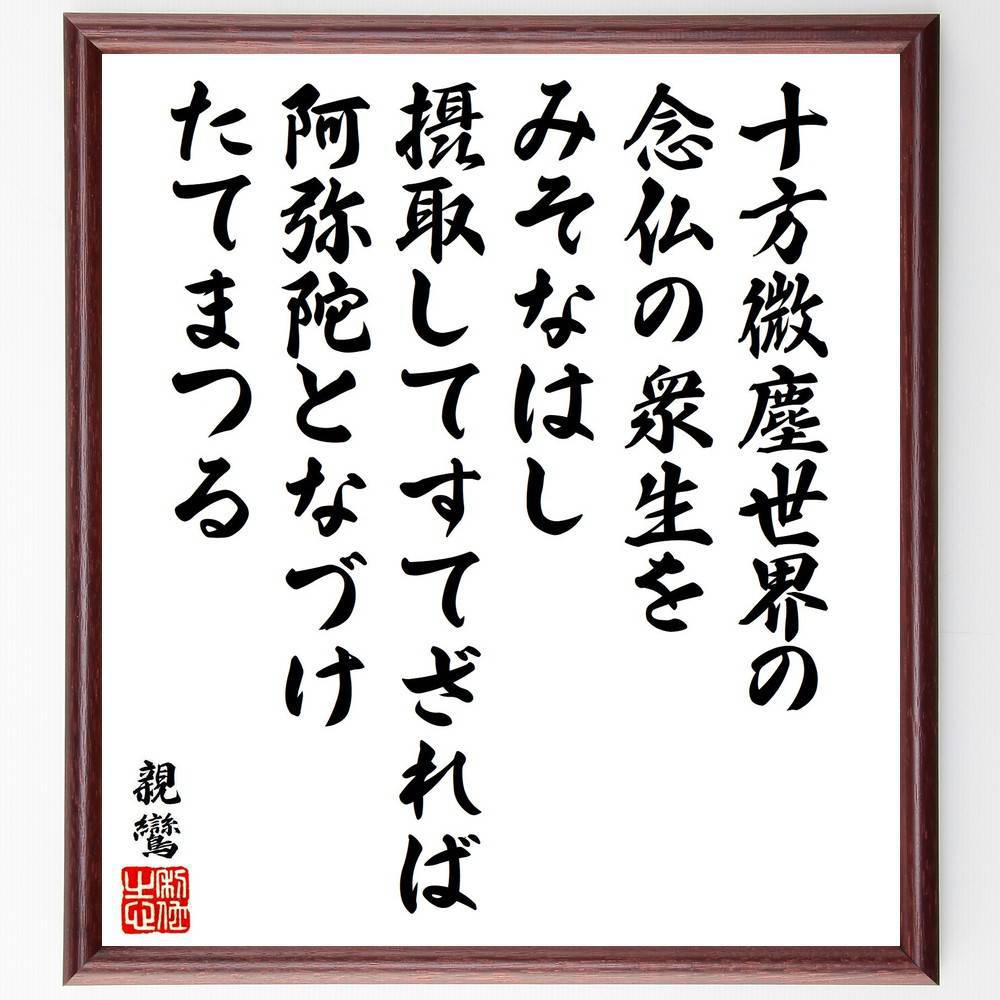 十方微塵世界の
念仏の衆生を
みそなはし
摂取してすてざれば
阿弥陀となづけ
たてまつる
親鸞